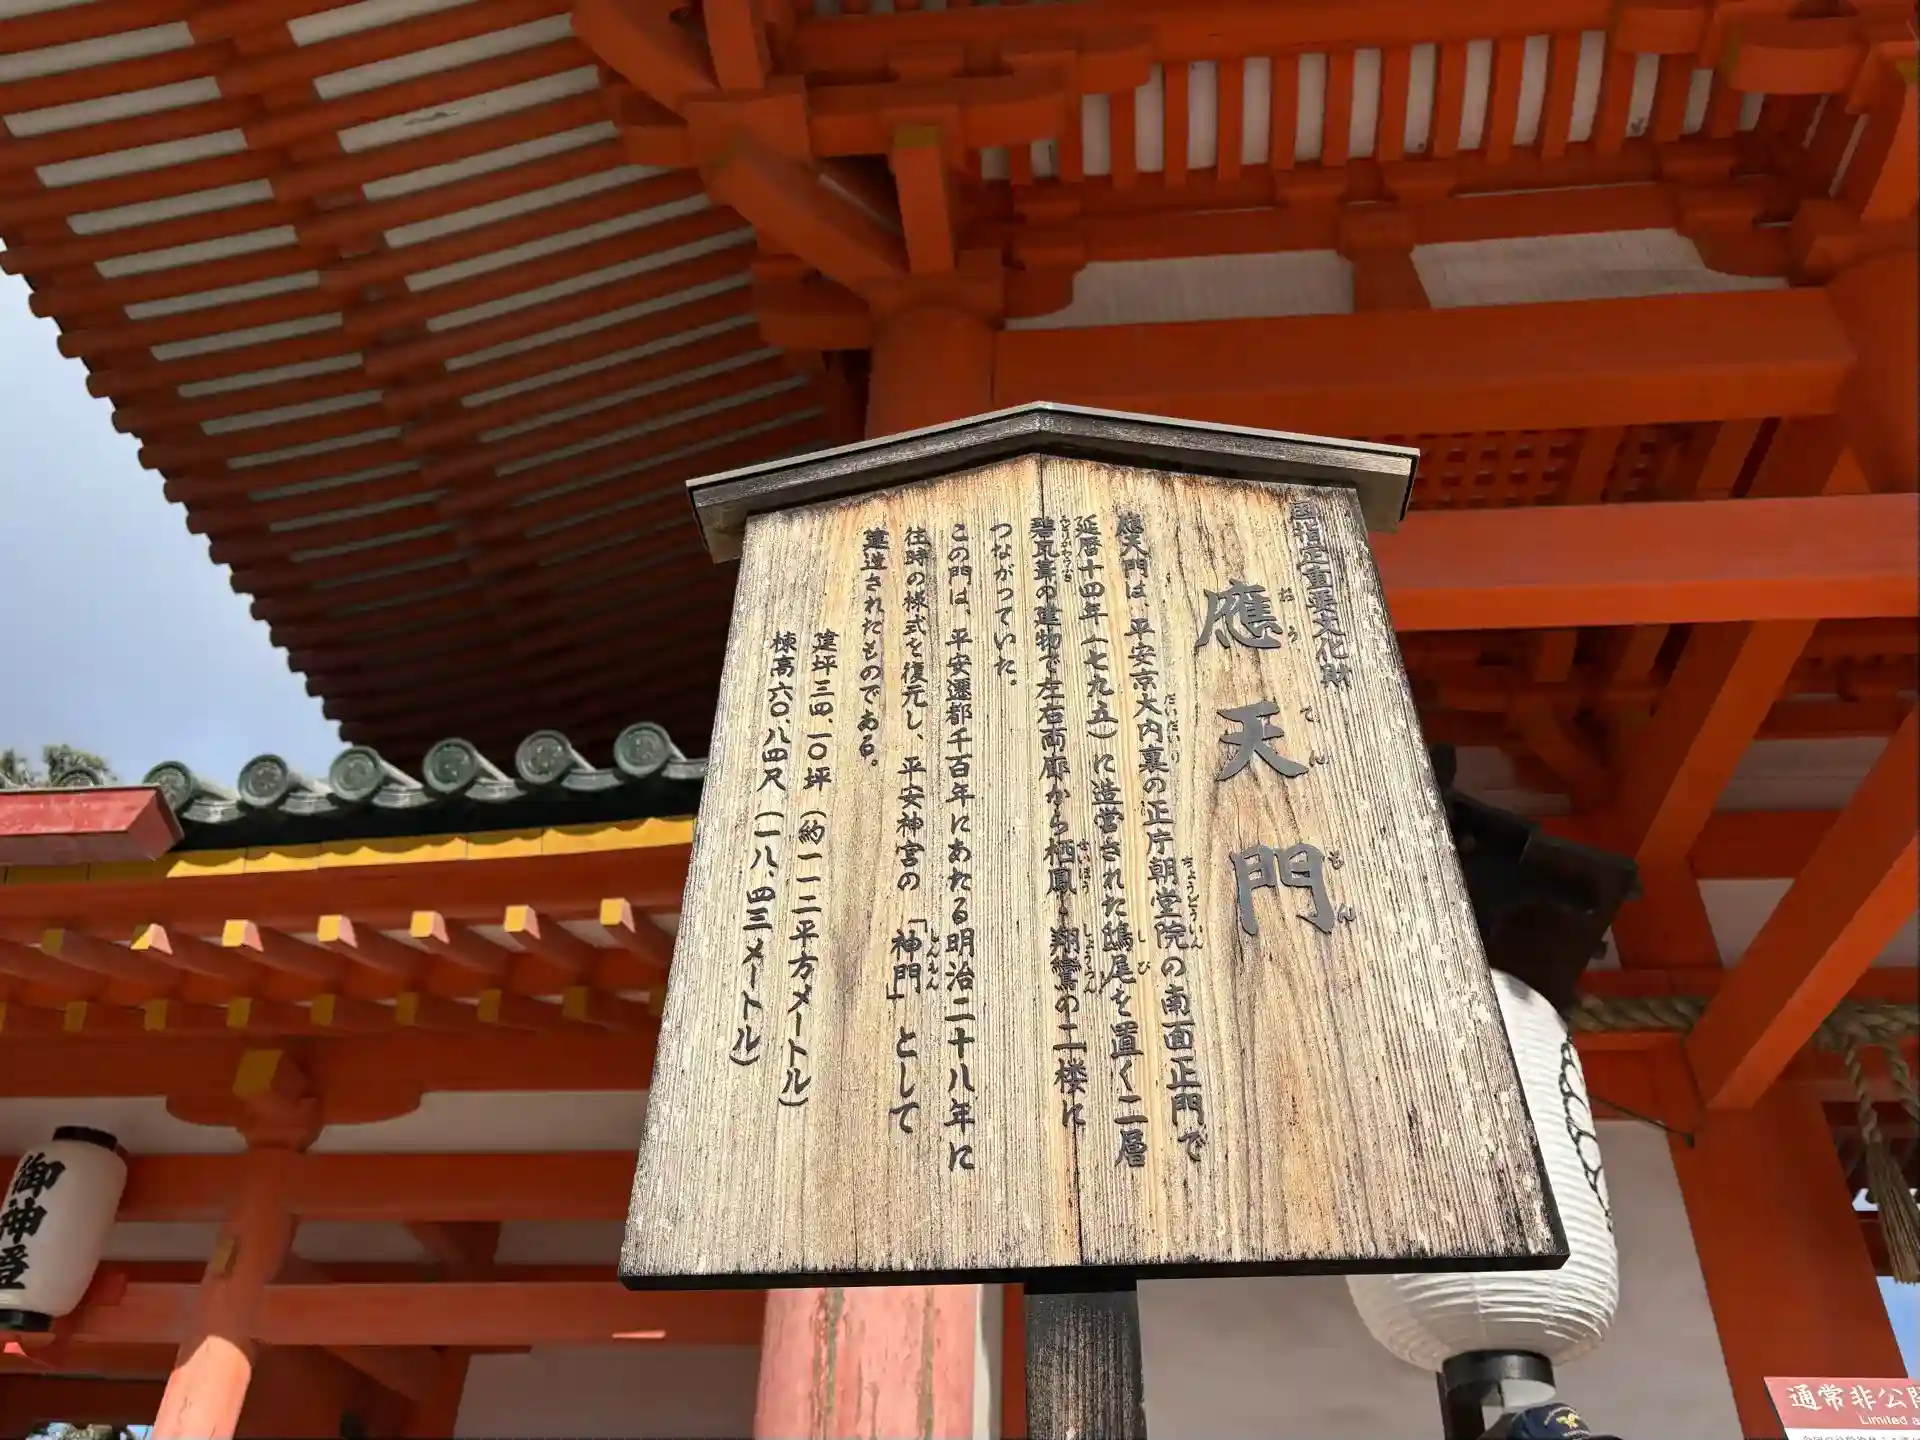 国指定重要文化財
應天門
おうてんもん
應天門は、平安京大内裏の正庁朝堂院の南面正門で
だいだいり
ちょうどういん
延暦十四年(七九五)に造営された鴟尾を置く二層
しび
碧瓦葺の建物で左右両廊から栖鳳・翔鸞の二楼に
みどりがわらぶき
せいほう
しょうらん
つながっていた。
この門は、平安遷都千百年にあたる明治二十八年に
往時の様式を復元し、平安神宮の「神門」として
しんもん
建造されたものである。
建坪三四.一〇坪(約一一二平方メートル)
棟高六〇.八四尺(一八.四三メートル)
御神燈
通常非公開
Limited